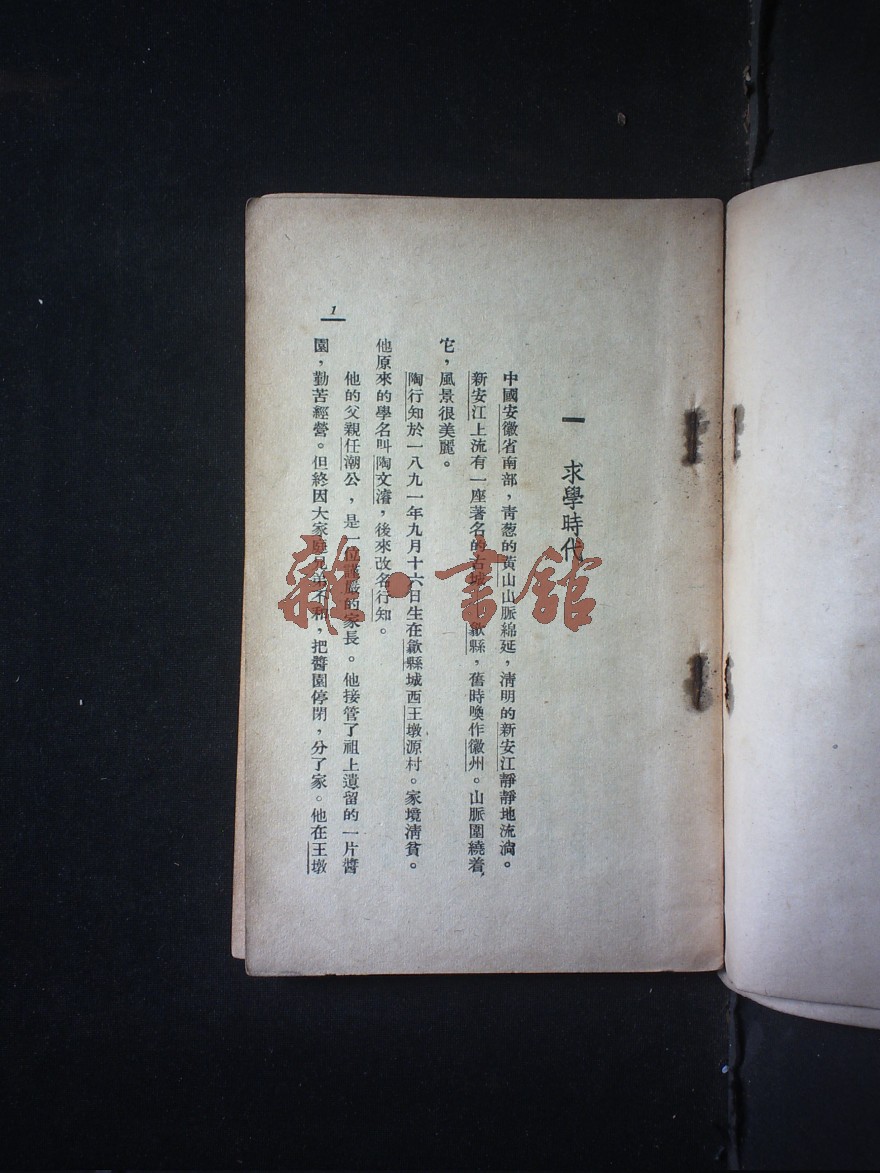 一 求學時代
中國安徽省南部，青葱的黃山山脈綿延，清明的新安江靜靜地流淌。
新安江上流有一座著名的古城 歙縣，舊時喚作徽州。山脈圍繞着
它，風景很美麗。
陶行知於一八九一年九月十六日生在歙縣城西王墩源村。家境清貧。
他原來的學名叫陶文濬，後來改名行知。
他的父親任潮公，是一位謹嚴的家長。他接管了祖上遺留的一片醬
園，勤苦經營。但終因大家庭兄弟不和，把醬園停閉，分了家。他在王墩
1
雜·書館